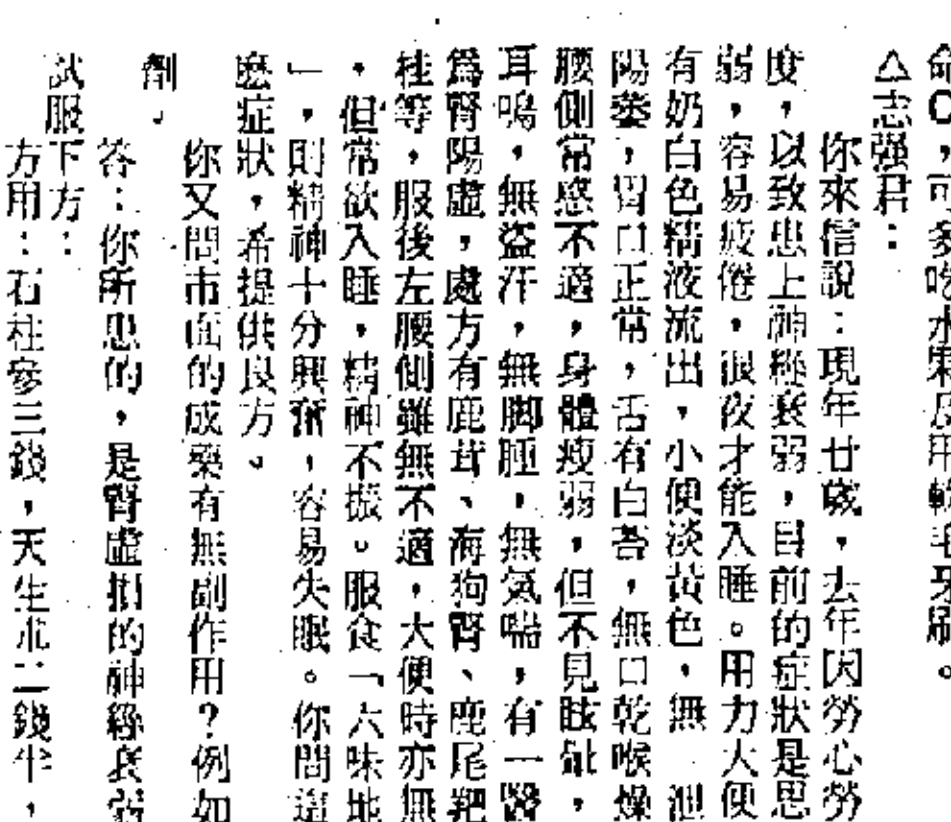 命C，可多吃水果及用軟毛牙刷。
△志强君：
你來信說：現年廿歲，去年因勞心勞
度，以致患上神經衰弱，目前的症狀是思
弱，容易疲倦，很夜才能入睡。用力大便
有奶白色精液流出，小便淡黃色，無　泄
陽萎，胃口正常，舌有白苔，無口乾喉燥
腰側常感不適，身體瘦弱，但不見眩暈，
耳鳴，無盜汗，無脚腫，無氣喘，有一醫
爲腎陽虛，處方有鹿茸、海狗腎、鹿尾羓
桂等，服後左腰側雖無不適，大便時亦無
，但常欲入睡，精神不振。服食「六味地
」，則精神十分興奮，容易失眠。你問這
麽症狀，希提供良方。
你又問市面的成藥有無副作用？例如
劑。
答：你所患的，是腎虛損的神經衰弱
試服下方：
方用：石柱參三錢，天生朮二錢半，